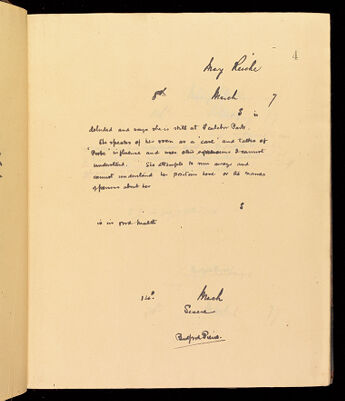 4
May
8th March 7
S is
deluded and says she is still at
She speaks of her room as a "cave" and talks of
influence and uses other expressions I cannot
understand. She attempts to run away and
cannot understand her position here or the names
of persons about her
S
is in good health
14th March